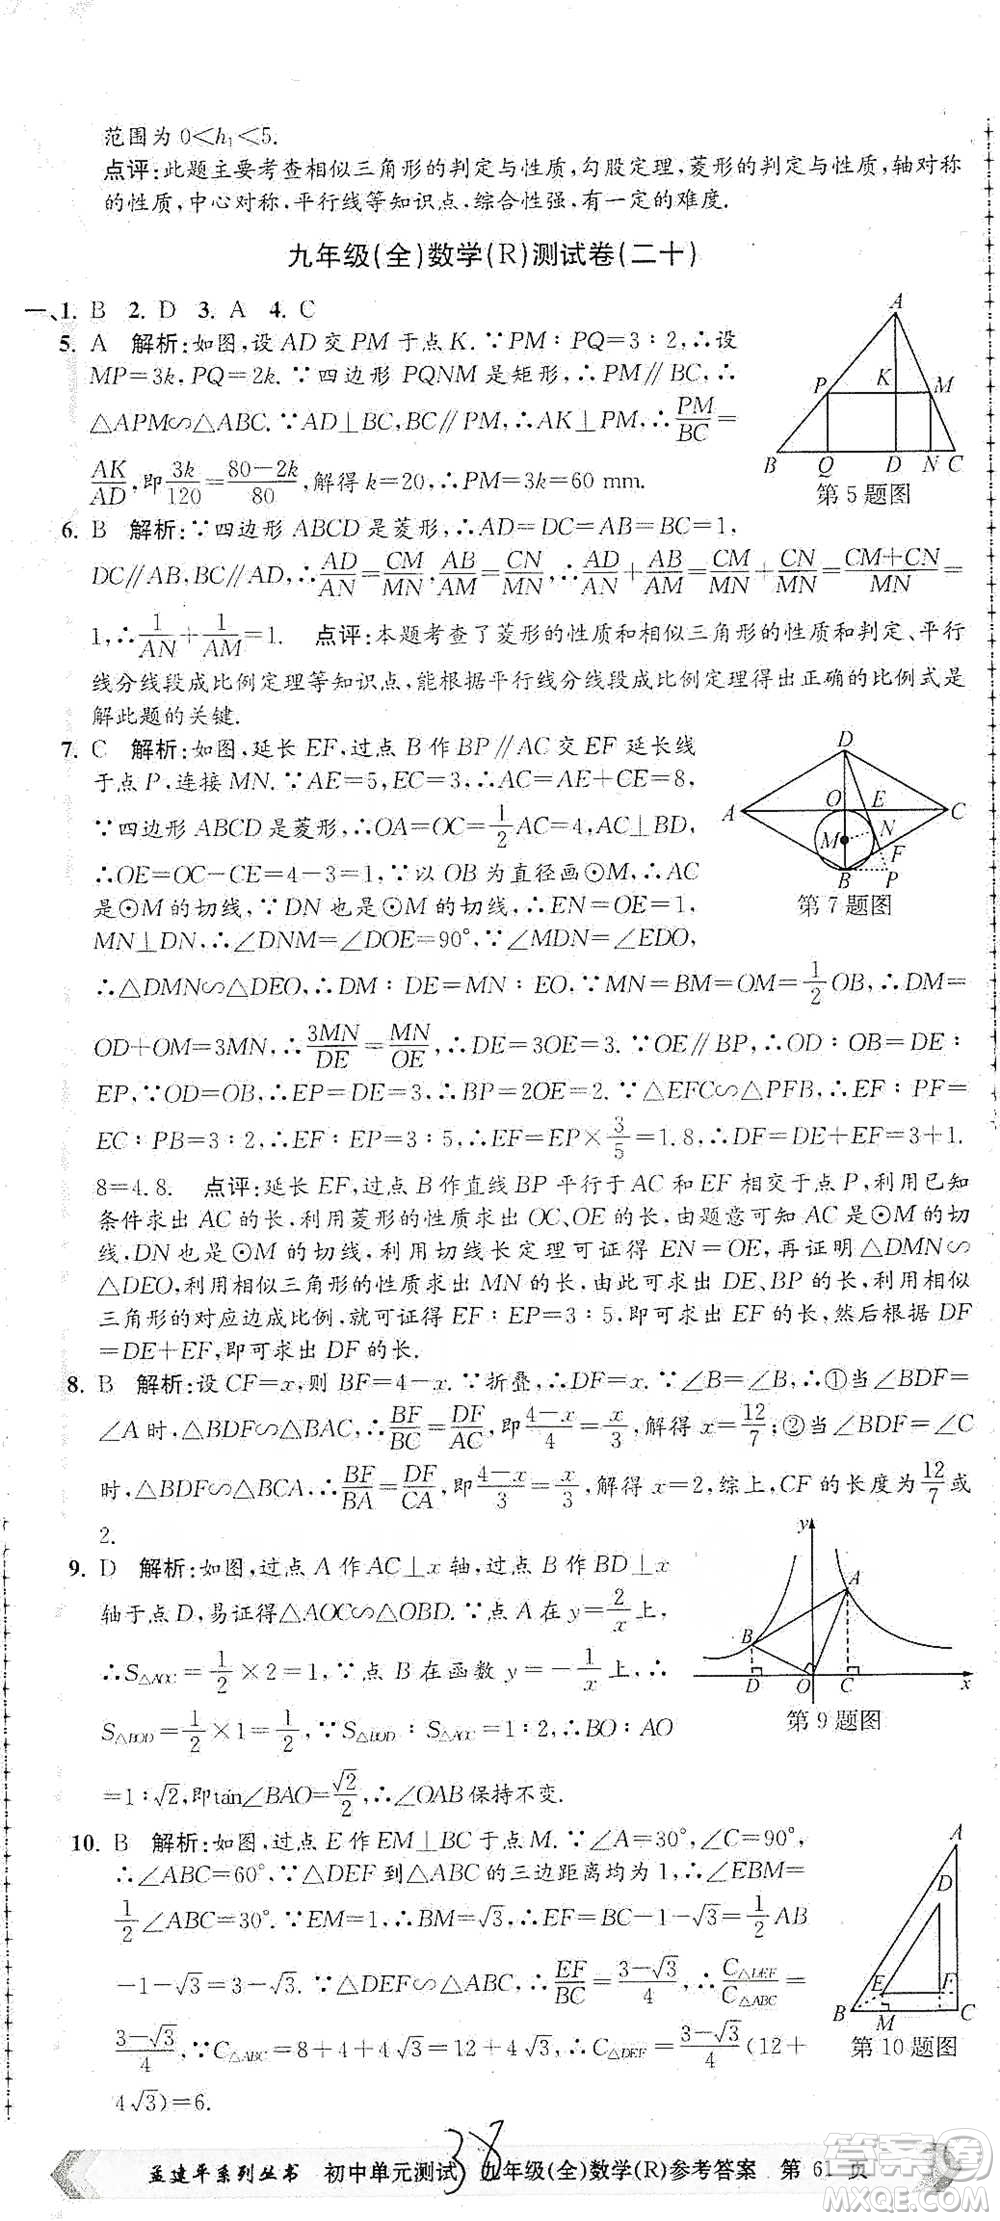 范围为 0<h₁<5.
点评:此题主要考查相似三角形的判定与性质,勾股定理,菱形的判定与性质,轴对称
的性质,中心对称,平行线等知识点,综合性强,有一定的难度.
九年级(全)数学(R)测试卷(二十)
一、1. B 2. D 3. A 4. C
5. A 解析:如图,设 AD 交 PM 于点 K. ∵PM∶PQ=3∶2,∴设
MP=3k,PQ=2k. ∵四边形 PQNM 是矩形,∴PM∥BC,∴
△APM∽△ABC. ∵AD⊥BC,BC∥PM,∴AK⊥PM,∴PM/BC=
AK/AD,即3k/120=(80-2k)/80,解得 k=20,∴PM=3k=60 mm.
A
P
K
M
B
Q
D
N
C
第 5 题图
6. B 解析:∵四边形 ABCD 是菱形,∴AD=DC=AB=BC=1,
DC∥AB,BC∥AD,∴AD/AN=CM/MN,AB/AM=CN/MN,∴AD/AN+AB/AM=CM/MN+CN/MN=(CM+CN)/MN=
1,∴1/AN+1/AM=1. 点评:本题考查了菱形的性质和相似三角形的性质和判定、平行
线分线段成比例定理等知识点,能根据平行线分线段成比例定理得出正确的比例式是
解此题的关键.
7. C 解析:如图,延长 EF,过点 B 作 BP∥AC 交 EF 延长线
于点 P,连接 MN. ∵AE=5,EC=3,∴AC=AE+CE=8,
∵四边形 ABCD 是菱形,∴OA=OC=1/2AC=4,AC⊥BD,
∴OE=OC-CE=4-3=1,∵以 OB 为直径画⊙M,∴AC
是⊙M 的切线,∵DN 也是⊙M 的切线,∴EN=OE=1,
MN⊥DN,∴∠DNM=∠DOE=90°,∵∠MDN=∠EDO,
D
A
O
E
C
M
N
F
B
P
第 7 题图
∴△DMN∽△DEO,∴DM∶DE=MN∶EO,∵MN=BM=OM=1/2OB,∴DM=
OD+OM=3MN,∴3MN/DE=MN/OE,∴DE=3OE=3. ∵OE∥BP,∴OD∶OB=DE∶
EP,∵OD=OB,∴EP=DE=3,∴BP=2OE=2. ∵△EFC∽△PFB,∴EF∶PF=
EC∶PB=3∶2,∴EF∶EP=3∶5,∴EF=EP×3/5=1.8,∴DF=DE+EF=3+1.
8=4.8. 点评:延长 EF,过点 B 作直线 BP 平行于 AC 和 EF 相交于点 P,利用已知
条件求出 AC 的长,利用菱形的性质求出 OC、OE 的长,由题意可知 AC 是⊙M 的切
线,DN 也是⊙M 的切线,利用切线长定理可证得 EN=OE,再证明△DMN∽
△DEO,利用相似三角形的性质求出 MN 的长,由此可求出 DE、BP 的长,利用相似
三角形的对应边成比例,可证得 EF∶EP=3∶5,即可求出 EF 的长,然后根据 DF
=DE+EF,即可求出 DF 的长.
8. B 解析:设 CF=x,则 BF=4-x. ∵折叠,∴DF=x. ∵∠B=∠B,∴①当∠BDF=
∠A 时,△BDF∽△BAC,∴BF/BC=DF/AC,即(4-x)/4=x/3,解得 x=12/7;②当∠BDF=∠C
时,△BDF∽△BCA,∴BF/BA=DF/CA,即(4-x)/3=x/3,解得 x=2,综上,CF 的长度为12/7或
2.
9. D 解析:如图,过点 A 作 AC⊥x 轴,过点 B 作 BD⊥x
轴于点 D,易证得△AOC∽△OBD. ∵点 A 在 y=2/x上,
∴S△AOC=1/2×2=1,∵点 B 在函数 y=-1/x上,∴
S△BOD=1/2×1=1/2,∵S△BOD∶S△AOC=1∶2,∴BO∶AO
=1∶√2,即tan∠BAO=√2/2,∴∠OAB 保持不变.
y
A
B
D
O
C
x
第 9 题图
10. B 解析:如图,过点 E 作 EM⊥BC 于点 M. ∵∠A=30°,∠C=90°,
∴∠ABC=60°. ∵△DEF 到△ABC 的三边距离均为 1,∴∠EBM=
1/2∠ABC=30°. ∵EM=1,∴BM=√3,∴EF=BC-1-√3=1/2AB
-1-√3=3-√3. ∵△DEF∽△ABC,∴EF/BC=(3-√3)/4,∴C△DEF/C△ABC=
(3-√3)/4. ∵C△ABC=8+4+4√3=12+4√3,∴C△DEF=(3-√3)/4(12+
4√3)=6.
A
D
E
F
B
M
C
第 10 题图
38
孟建平系列丛书 初中单元测试 九年级(全)数学(R)参考答案 第 61 页
答案圈
MXQE.COM